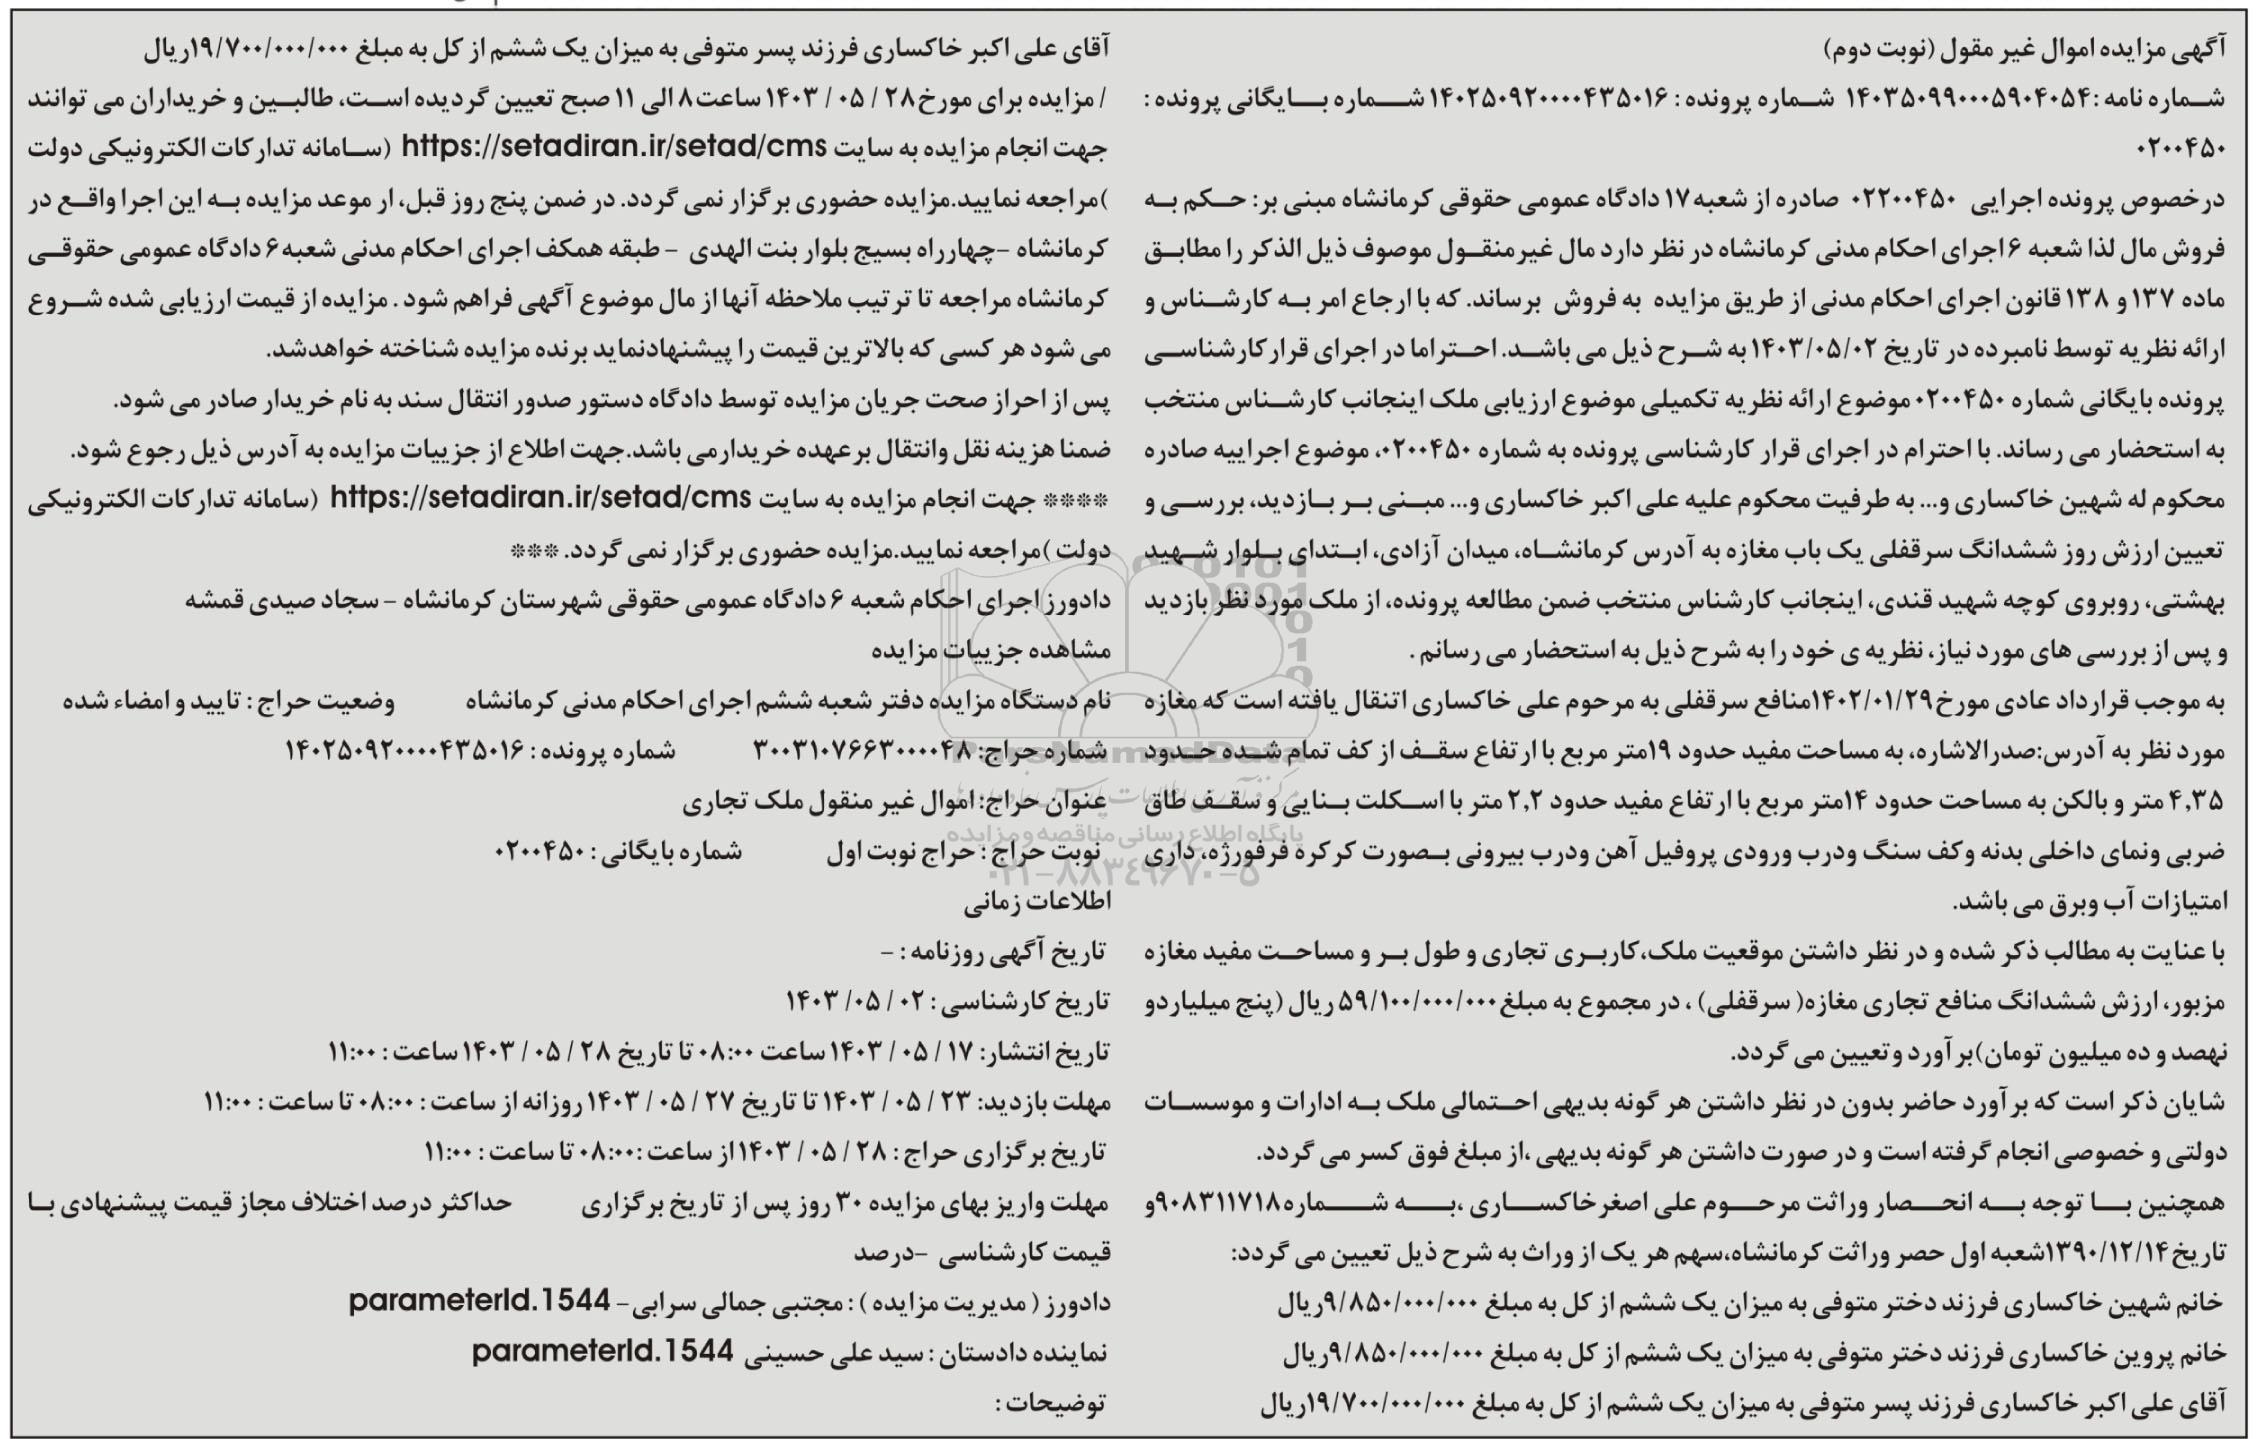 آگهی مزایده اموال غیر مقول (نوبت دوم)
شماره نامه :۱۴۰۳۵۰۹۹۰۰۰۵۹۰۴۰۵۴ شماره پرونده : ۱۴۰۲۵۰۹۲۰۰۰۰۴۳۵۰۱۶ شماره بایگانی پرونده :
۰۲۰۰۴۵۰
درخصوص پرونده اجرایی ۰۲۲۰۰۴۵۰ صادره از شعبه ۱۷ دادگاه عمومی حقوقی کرمانشاه مبنی بر: حکم به
فروش مال لذا شعبه ۶ اجرای احکام مدنی کرمانشاه در نظر دارد مال غیرمنقول موصوف ذیل الذکر را مطابق
ماده ۱۳۷ و ۱۳۸ قانون اجرای احکام مدنی از طریق مزایده به فروش برساند. که با ارجاع امر به کارشناس و
ارائه نظریه توسط نامبرده در تاریخ ۱۴۰۳/۰۵/۰۲ به شرح ذیل می باشد. احتراما در اجرای قرار کارشناسی
پرونده بایگانی شماره ۰۲۰۰۴۵۰ موضوع ارائه نظریه تکمیلی موضوع ارزیابی ملک اینجانب کارشناس منتخب
به استحضار می رساند. با احترام در اجرای قرار کارشناسی پرونده به شماره ۰۲۰۰۴۵۰، موضوع اجراییه صادره
محکوم له شهین خاکساری و... به طرفیت محکوم علیه علی اکبر خاکساری و... مبنی بر بازدید، بررسی و
تعیین ارزش روز ششدانگ سرقفلی یک باب مغازه به آدرس کرمانشاه، میدان آزادی، ابتدای بلوار شهید
بهشتی، روبروی کوچه شهید قندی، اینجانب کارشناس منتخب ضمن مطالعه پرونده، از ملک مورد نظر بازدید
و پس از بررسی های مورد نیاز، نظریه ی خود را به شرح ذیل به استحضار می رسانم .
به موجب قرارداد عادی مورخ ۱۴۰۲/۰۱/۲۹منافع سرقفلی به مرحوم علی خاکساری اتنقال یافته است که مغازه
مورد نظر به آدرس:صدرالاشاره، به مساحت مفید حدود ۱۹متر مربع با ارتفاع سقف از کف تمام شده حدود
۴,۳۵ متر و بالکن به مساحت حدود ۱۴متر مربع با ارتفاع مفید حدود ۲,۲ متر با اسکلت بنایی و سقف طاق
ضربی ونمای داخلی بدنه وکف سنگ ودرب ورودی پروفیل آهن ودرب بیرونی بصورت کرکره فرفورژه، داری
امتیازات آب وبرق می باشد.
با عنایت به مطالب ذکر شده و در نظر داشتن موقعیت ملک،کاربری تجاری و طول بر و مساحت مفید مغازه
مزبور، ارزش ششدانگ منافع تجاری مغازه( سرقفلی) ، در مجموع به مبلغ ۵۹/۱۰۰/۰۰۰/۰۰۰ ریال (پنج میلیاردو
نهصد و ده میلیون تومان)برآورد وتعیین می گردد.
شایان ذکر است که برآورد حاضر بدون در نظر داشتن هر گونه بدیهی احتمالی ملک به ادارات و موسسات
دولتی و خصوصی انجام گرفته است و در صورت داشتن هر گونه بدیهی ،از مبلغ فوق کسر می گردد.
همچنین با توجه به انحصار وراثت مرحوم علی اصغرخاکساری ،به شماره۹۰۸۳۱۱۷۱۸و
تاریخ ۱۳۹۰/۱۲/۱۴شعبه اول حصر وراثت کرمانشاه،سهم هر یک از وراث به شرح ذیل تعیین می گردد:
خانم شهین خاکساری فرزند دختر متوفی به میزان یک ششم از کل به مبلغ ۹/۸۵۰/۰۰۰/۰۰۰ریال
خانم پروین خاکساری فرزند دختر متوفی به میزان یک ششم از کل به مبلغ ۹/۸۵۰/۰۰۰/۰۰۰ریال
آقای علی اکبر خاکساری فرزند پسر متوفی به میزان یک ششم از کل به مبلغ ۱۹/۷۰۰/۰۰۰/۰۰۰ریال
آقای علی اکبر خاکساری فرزند پسر متوفی به میزان یک ششم از کل به مبلغ ۱۹/۷۰۰/۰۰۰/۰۰۰ریال
/ مزایده برای مورخ ۲۸ / ۰۵ / ۱۴۰۳ ساعت ۸ الی ۱۱ صبح تعیین گردیده است، طالبین و خریداران می توانند
جهت انجام مزایده به سایت https://setadiran.ir/setad/cms (سامانه تدارکات الکترونیکی دولت
)مراجعه نمایید.مزایده حضوری برگزار نمی گردد. در ضمن پنج روز قبل، ار موعد مزایده به این اجرا واقع در
کرمانشاه -چهارراه بسیج بلوار بنت الهدی - طبقه همکف اجرای احکام مدنی شعبه ۶ دادگاه عمومی حقوقی
کرمانشاه مراجعه تا ترتیب ملاحظه آنها از مال موضوع آگهی فراهم شود . مزایده از قیمت ارزیابی شده شروع
می شود هر کسی که بالاترین قیمت را پیشنهادنماید برنده مزایده شناخته خواهدشد.
پس از احراز صحت جریان مزایده توسط دادگاه دستور صدور انتقال سند به نام خریدار صادر می شود.
ضمنا هزینه نقل وانتقال برعهده خریدارمی باشد.جهت اطلاع از جزییات مزایده به آدرس ذیل رجوع شود.
**** جهت انجام مزایده به سایت https://setadiran.ir/setad/cms (سامانه تدارکات الکترونیکی
دولت )مراجعه نمایید.مزایده حضوری برگزار نمی گردد. ***
دادورز اجرای احکام شعبه ۶ دادگاه عمومی حقوقی شهرستان کرمانشاه - سجاد صیدی قمشه
مشاهده جزییات مزایده
نام دستگاه مزایده دفتر شعبه ششم اجرای احکام مدنی کرمانشاه وضعیت حراج : تایید و امضاء شده
شماره حراج: ۳۰۰۳۱۰۷۶۶۳۰۰۰۰۴۸ شماره پرونده : ۱۴۰۲۵۰۹۲۰۰۰۰۴۳۵۰۱۶
عنوان حراج: اموال غیر منقول ملک تجاری
نوبت حراج : حراج نوبت اول شماره بایگانی : ۰۲۰۰۴۵۰
اطلاعات زمانی
تاریخ آگهی روزنامه : -
تاریخ کارشناسی : ۰۲ / ۰۵/ ۱۴۰۳
تاریخ انتشار: ۱۷ / ۰۵ / ۱۴۰۳ ساعت ۰۸:۰۰ تا تاریخ ۲۸ / ۰۵ / ۱۴۰۳ ساعت : ۱۱:۰۰
مهلت بازدید: ۲۳ / ۰۵ / ۱۴۰۳ تا تاریخ ۲۷ / ۰۵ / ۱۴۰۳ روزانه از ساعت : ۰۸:۰۰ تا ساعت : ۱۱:۰۰
تاریخ برگزاری حراج : ۲۸ / ۰۵ / ۱۴۰۳از ساعت :۰۸:۰۰ تا ساعت : ۱۱:۰۰
مهلت واریز بهای مزایده ۳۰ روز پس از تاریخ برگزاری حداکثر درصد اختلاف مجاز قیمت پیشنهادی با
قیمت کارشناسی -درصد
دادورز ( مدیریت مزایده ) : مجتبی جمالی سرابی- parameterId.1544
نماینده دادستان : سید علی حسینی parameterId.1544
توضیحات :
ParsNamadData
پایگاه اطلاع رسانی مناقصه و مزایده
۰۲۱-۸۸۳۴۹۶۷۰-۵